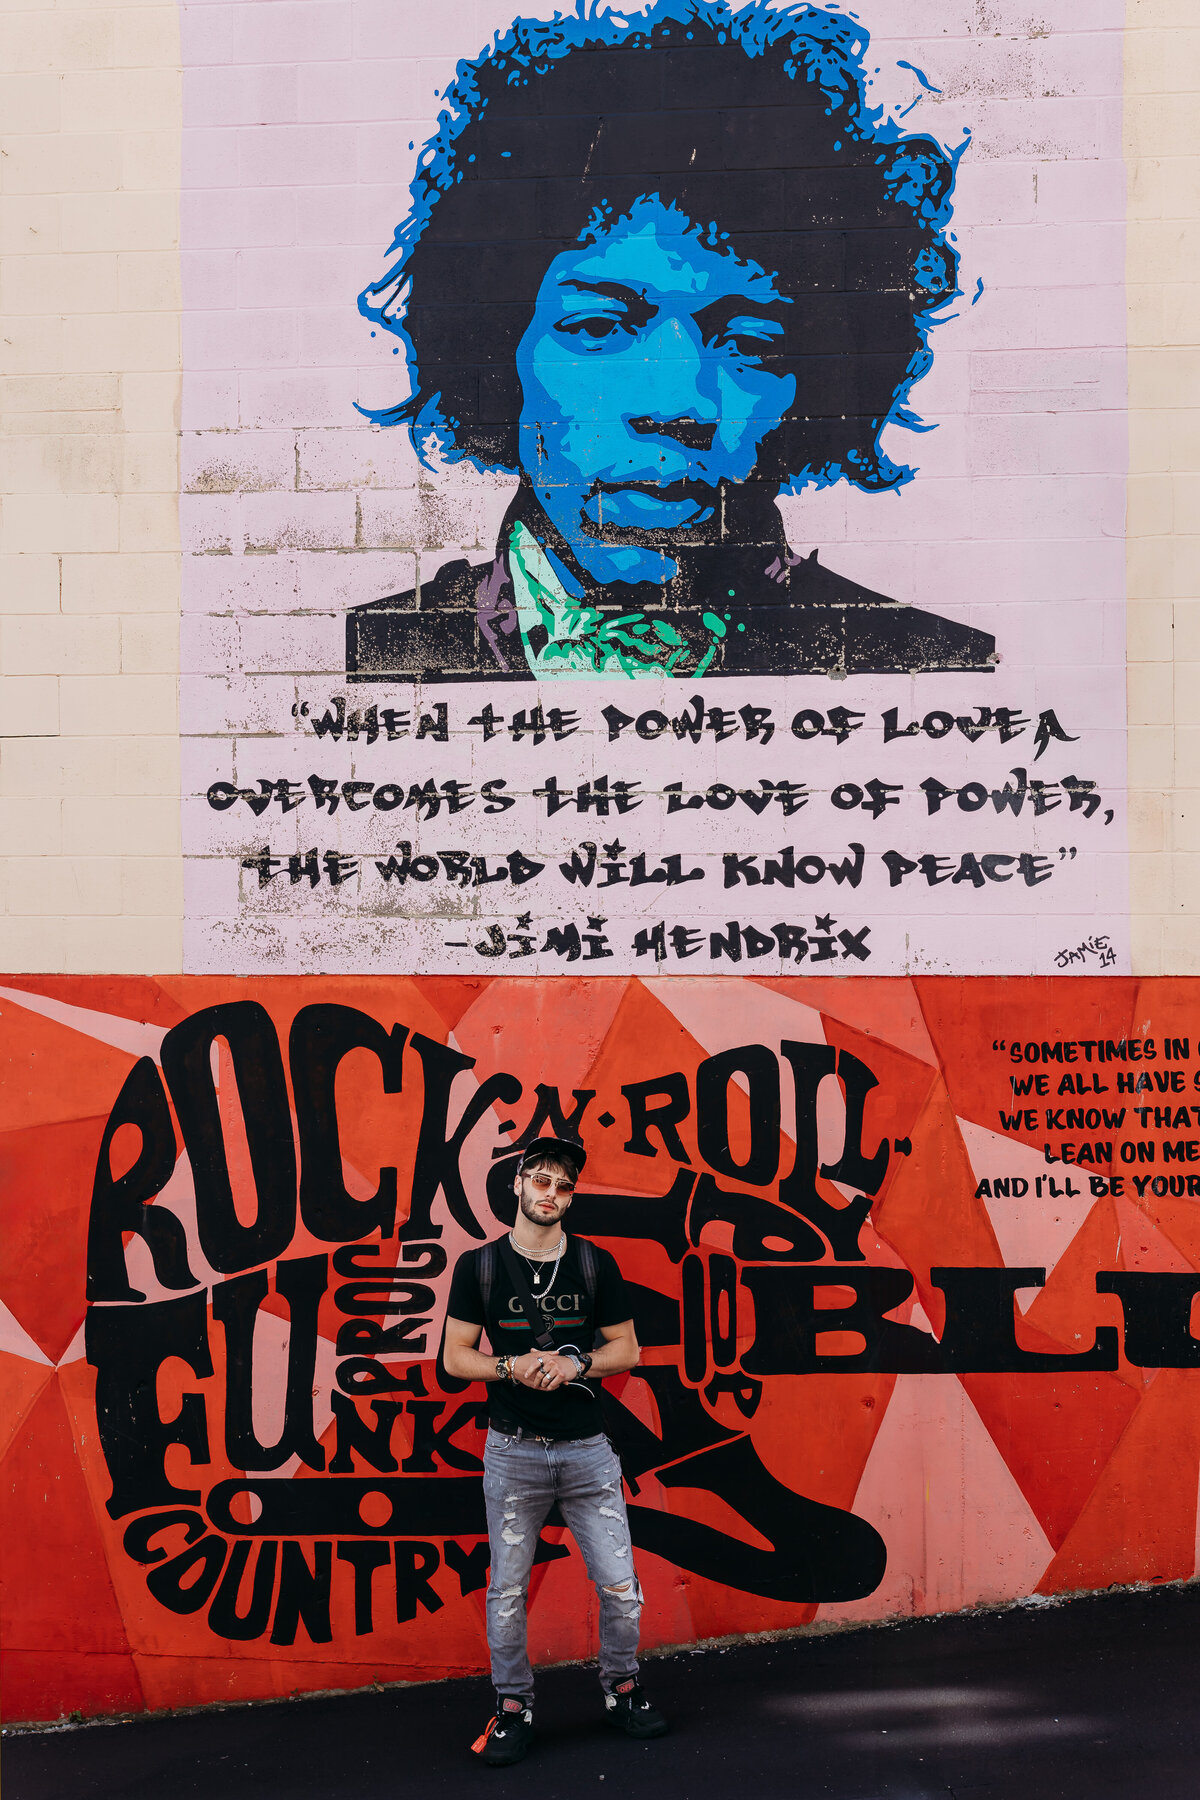 “WHEN THE POWER OF LOVE
OVERCOMES THE LOVE OF POWER,
THE WORLD WILL KNOW PEACE”
-JIMI HENDRIX
JAMIE
14
“SOMETIMES IN
WE ALL HAVE
WE KNOW THAT
LEAN ON ME
AND I'LL BE YOUR
ROCK-N-ROLL-
FUNK
PROG
POP
COUNTRY
GUCCI
OFF